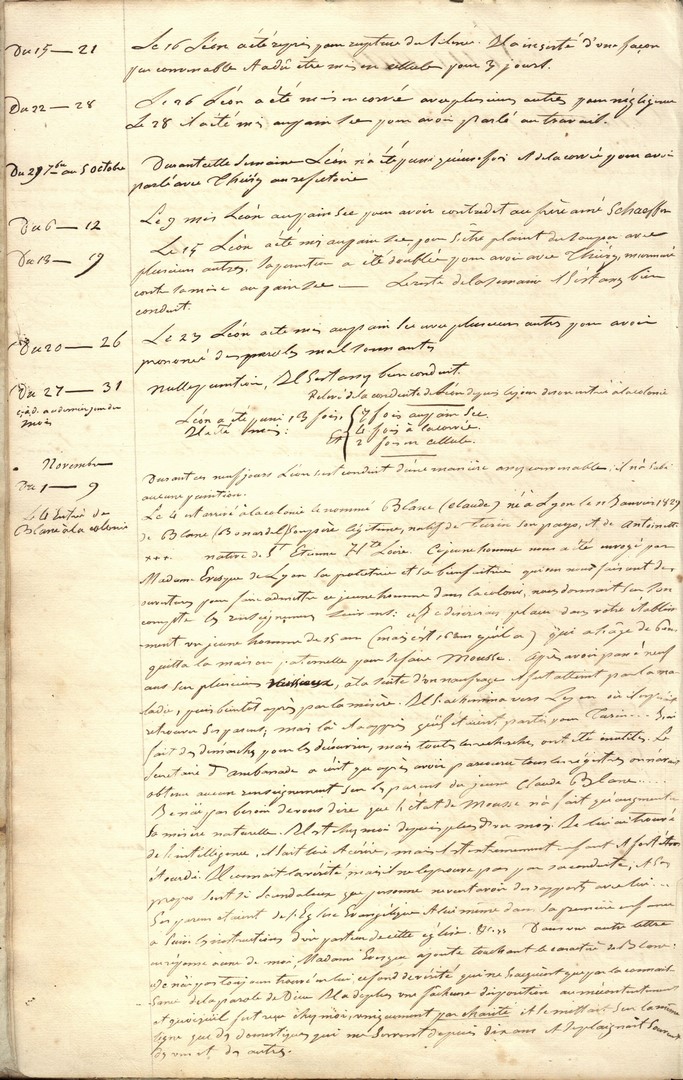 Du 15 — 21 Le 16 Léon a été repris pour rupture du silence. Il a insisté d'une façon
peu convenable. A dû être mis en cellule pour 3 jours.
Du 22 — 28 Le 26 Léon a été mis en corvée avec plusieurs autres pour négligence
Le 28 il a été mis au pain sec pour avoir parlé au travail.
Du 29 7bre au 5 octobre Durant cette semaine Léon n'a été puni qu'une fois et de la corvée pour avoir
parlé avec Thiéry au réfectoire
Du 6 — 12 Le 9 mis Léon au pain sec pour avoir contredit au frère aîné Schaeffer
Du 13 — 19 Le 15 Léon a été mis au pain sec, pour s'être plaint du souper avec
plusieurs autres, la punition a été doublée pour avoir avec Thiéry, murmuré
contre la mise au pain sec — Le reste de la semaine il s'est assez bien
conduit.
Du 20 — 26 Le 23 Léon a été mis au pain sec avec plusieurs autres pour avoir
prononcé des paroles mal sonnantes
Du 27 — 31 Nulle punition, il s'est assez bien conduit.
c-à-d. au dernier jour du
mois
Relevé de la conduite de Léon depuis le jour de son entrée à la colonie
Léon a été puni, 13 fois, 7 fois au pain sec.
Il a été mis : 4 fois à la corvée.
2 fois en cellule.
Novembre
Du 1 — 9 Durant ces neuf jours Léon s'est conduit d'une manière assez convenable; il n'a subi
aucune punition.
Le 4 Entrée de
Blanc à la colonie
Le 4 est arrivé à la colonie le nommé Blanc (Claude) né à Lyon le 11 Janvier 1829
de Blanc (Bonardel) son père légitime, natif de Turin son pays, et de Antoinette
*** native de St Etienne Hte Loire. Ce jeune homme nous a été envoyé par
Madame Evesque de Lyon sa protectrice et sa bienfaitrice qui en nous faisant des
ouvertures pour faire admettre ce jeune homme dans la colonie, nous donnait sur son
compte les renseignemens suivants: je désirerais placer dans votre établisse-
ment un jeune homme de 15 ans (mais c'est 16 ans qu'il a) qui a l'âge de 6 ans
quitta la maison paternelle pour se faire Mousse. Après avoir passé neuf
ans sur plusieurs vaisseaux, à la suite d'un naufrage il fut atteint par la ma-
ladie, puis bientôt après par la misère. Il s'achemina vers Lyon où il espérait
retrouver ses parens, mais là il apprit qu'ils étaient partis pour Turin... J'ai
fait des démarches pour les découvrir, mais toutes les recherches, ont été inutiles. Le
Secrétaire d'ambassade a écrit qu'après avoir parcouru tous les registres on n'avait
obtenu aucun renseignement sur les parens du jeune Claude Blanc.....
Je n'ai pas besoin de vous dire que l'état de Mousse n'a fait qu'augmenter
sa misère naturelle. Il est chez moi depuis plus d'un mois. Je lui ai trouvé
de l'intelligence, il sait lire et écrire, mais il est extrêmement enfant et fort
étourdi. Il connait la vérité mais il ne le prouve pas par sa conduite, et ses
propos sont si scandaleux que personne ne veut avoir des rapports avec lui...
Ses parens étaient de l'Eglise Evangélique et lui même dans sa première enfance
a suivi les instructions d'un pasteur de cette église. Dans une autre lettre
en réponse à une de moi, Madame Evesque ajoute touchant le caractère de Blanc:
Je n'ai pas toujours trouvé en lui, ce fond de vérité qui ne s'acquiert que par la connais-
sance de la parole de Dieu. Il a de plus une fâcheuse disposition au mécontentement
et quoiqu'il fut reçu chez moi, uniquement par charité et le mettant sur la même
ligne que des domestiques qui me servent depuis dix ans il se plaignait souvent
des uns et des autres.